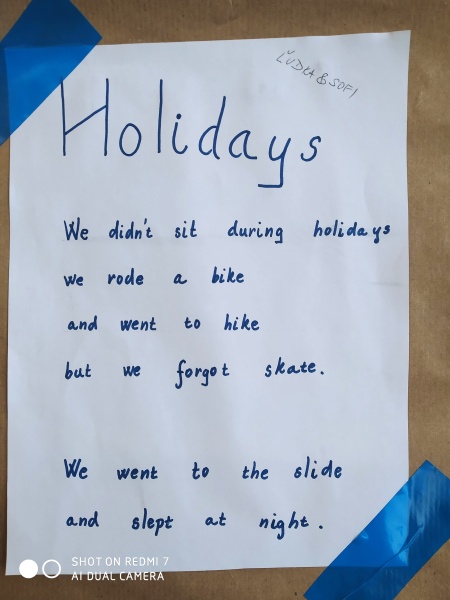 ĽUDKA & SOFI
Holidays
We didn't sit during holidays
we rode a bike
and went to hike
but we forgot skate.
We went to the slide
and slept at night.
SHOT ON REDMI 7
AI DUAL CAMERA